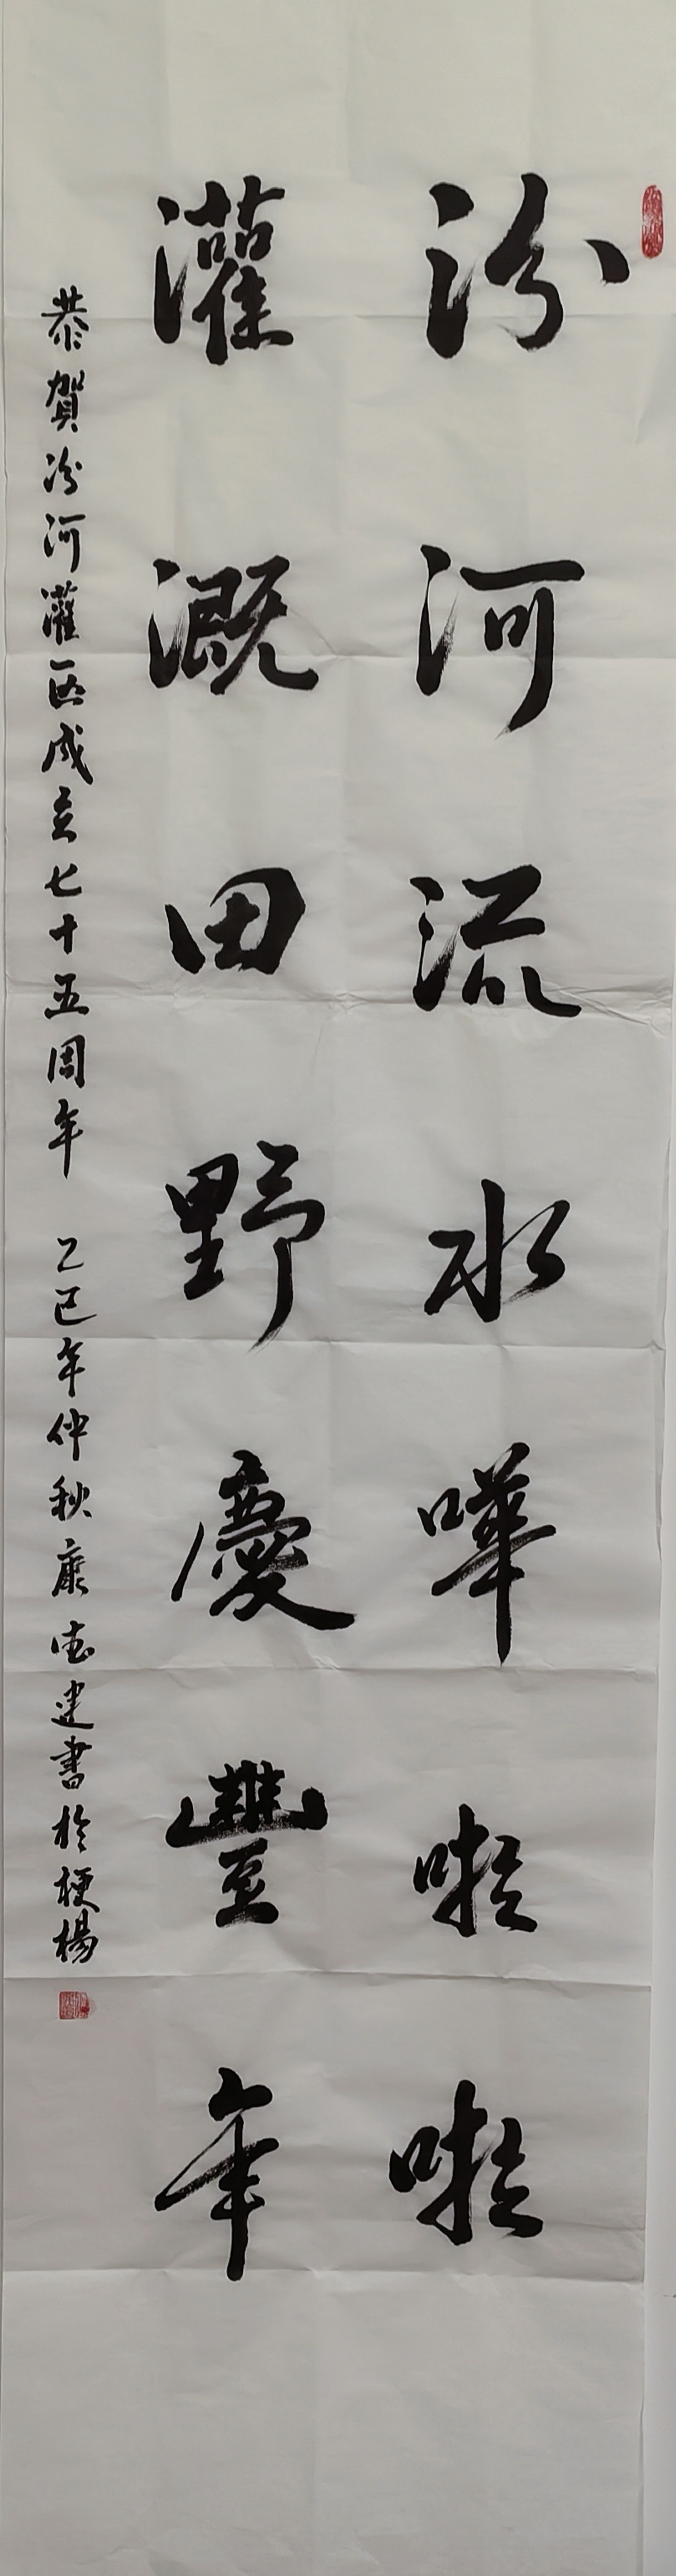 汾河流水嘩啦啦
灌溉田野慶豐年
恭賀汾河灌区成立七十五周年 乙巳年仲秋康德建書於梗楊